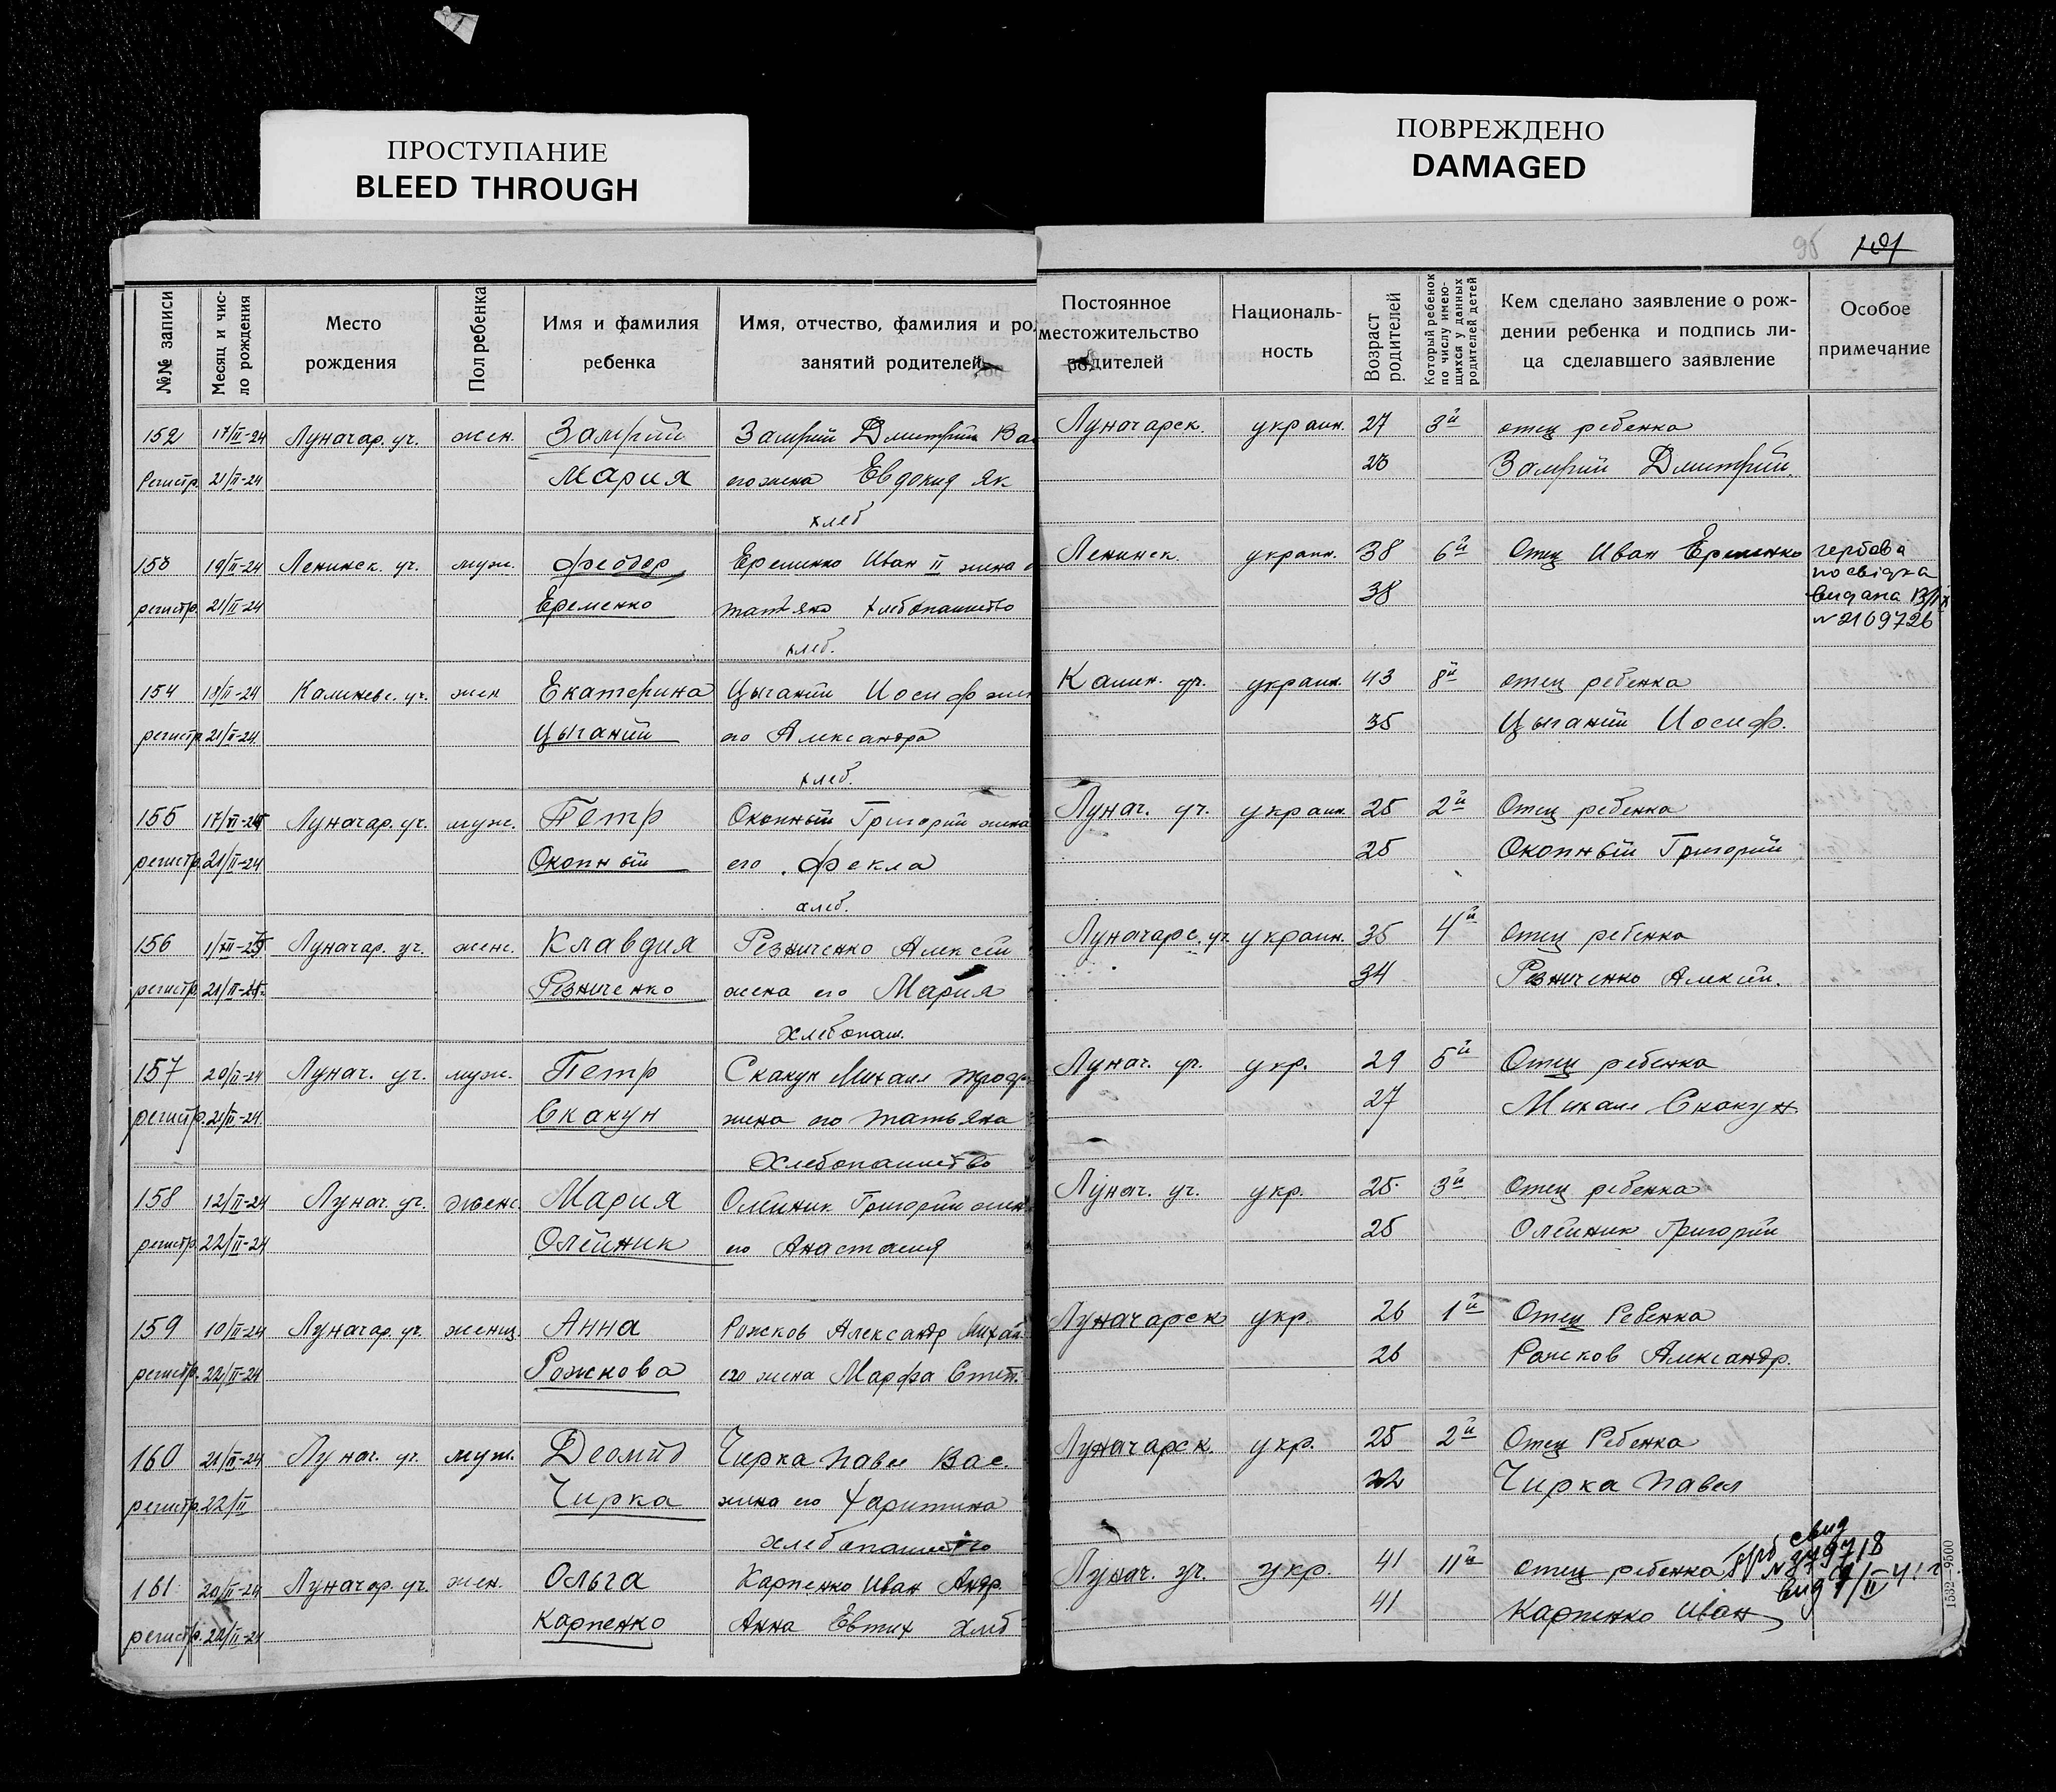 ПРОСТУПАНИЕ
BLEED THROUGH
ПОВРЕЖДЕНО
DAMAGED
95 101
№№ записи
Месяц и чис-
ло рождения
Место
рождения
Пол ребенка
Имя и фамилия
ребенка
Имя, отчество, фамилия и ро
занятий родителей
Постоянное
местожительство
родителей
Националь-
ность
Возраст
родителей
Который ребенок
по числу имею-
щихся у данных
родителей детей
Кем сделано заявление о рож-
дении ребенка и подпись ли-
ца сделавшего заявление
Особое
примечание
152 17/II-24 Луначар. уч. жен. Замрий Замрий Дмитрий Ва Луначарск. украин. 27 3й отец ребенка
Регистр. 21/II-24 Мария его жена Евдокия Як 28 Замрий Дмитрий.
хлеб
153 19/II-24 Ленинск. уч. муж. Феодор Еременко Иван II жена Ленинск. украин. 38 6й Отец Иван Еременко гербова
посвідка
регистр. 21/II-24 Еременко татьяна хлебопашество 38 видана
№ 2169726
хлеб.
154 18/II-24 Калиневс. уч. жен Екатерина Цыганий Иосиф жен Калин. уч. украин. 43 8й отец ребенка
регистр. 21/II-24. Цыганий его Александра 35 Цыганий Иосиф.
хлеб.
155 Луначар. уч. муж. Петр Окопный Григорий жена Лунач. уч. украин. 25 2й Отец ребенка
регистр. 21/II-24 Окопный его Фекла 25 Окопный Григорий
хлеб.
156 Луначар. уч. женс. Клавдия Резниченко Алексей Луначарс. уч. украин. 35 4й Отец ребенка
регистр. 21/II-24. Резниченко жена его Мария 34 Резниченко Алексей.
хлебопаш.
157 20/II-24 Лунач. уч. муж. Петр Скакун Михаил Лунач. уч. укр. 29 5й Отец ребенка
регистр. 21/II-24 Скакун жена его татьяна 27 Михаил Скакун
Хлебопашество
158 12/II-24 Лунач. уч. женс. Мария Олейник Григорий жен Лунач. уч. укр. 25. 3й Отец ребенка
регистр. 22/II-24 Олейник его Анастасия 25 Олейник Григорий
159 10/II-24 Луначар. уч. женщ. Анна Рожков Александр Михай Луначарск укр. 26 1й Отец Ребенка
регистр. 22/II-24 Рожкова его жена Марфа Степ. 26 Рожков Александр.
160 21/II-24 Лунач. уч. муж. Деомид Чирка Павел Вас. Луначарск. укр. 25 2й Отец Ребенка
регистр. 22/II Чирка жена его Харитина 22 Чирка Павел
хлебопашество
161 20/II-24 Луначар. уч. жен. Ольга Карпенко Иван Андр. Лунач. уч. укр. 41 11й отец ребенка
свид
№ 379718
регистр. 22/II-24 Карпенко Анна Евтих хлеб 41 Карпенко Иван
1532—9500